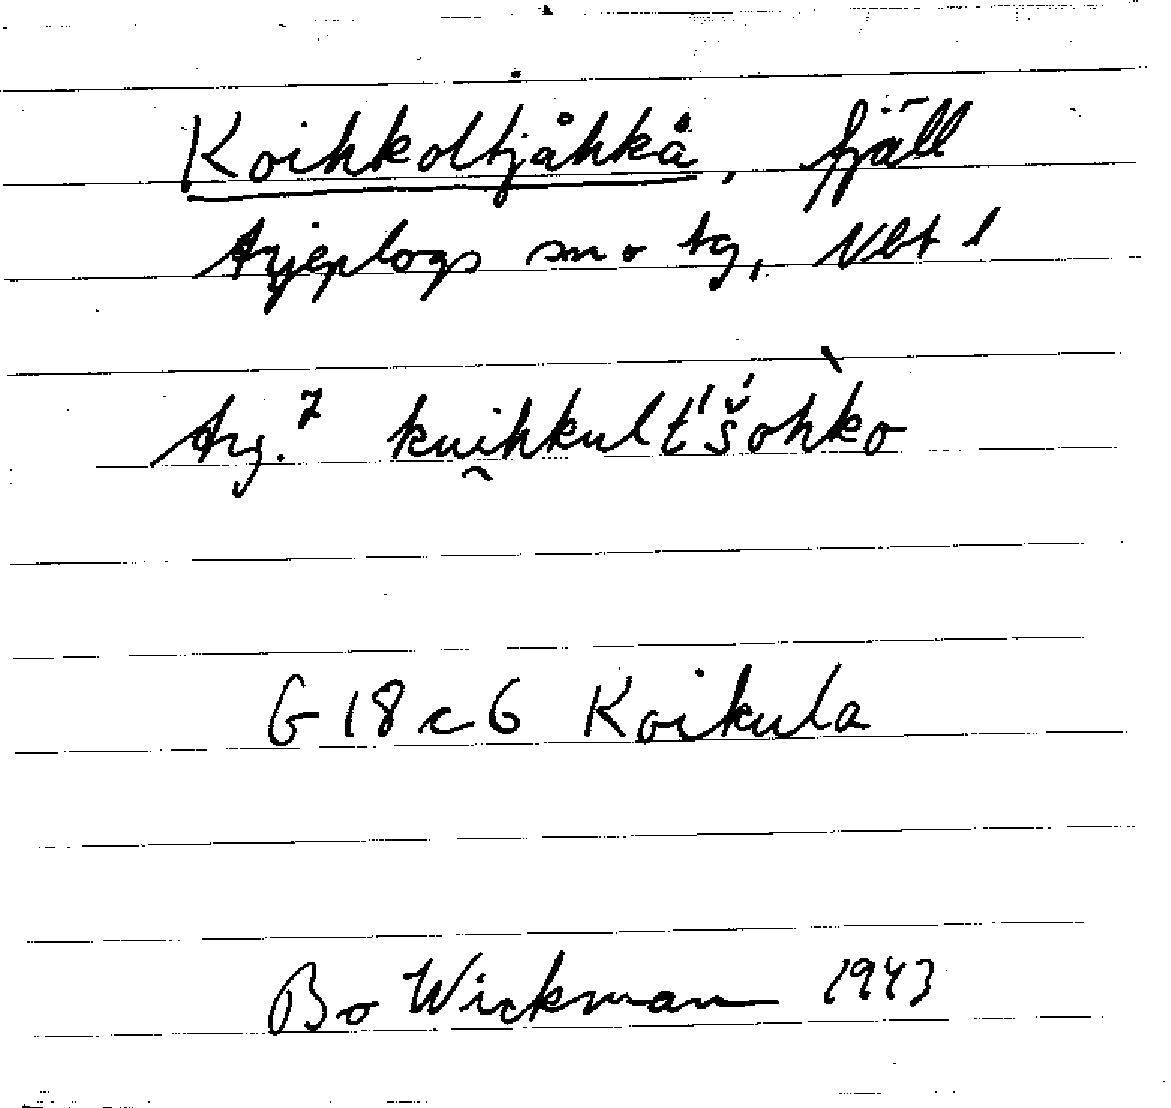 Koihkoltjåhkå, fjäll
Arjeplogs sn o tg, Vbt l
Arj.⁷ kui̯hkult́'š́ohk̀o
G 18 c 6 Koikula
Bo Wickman 1943